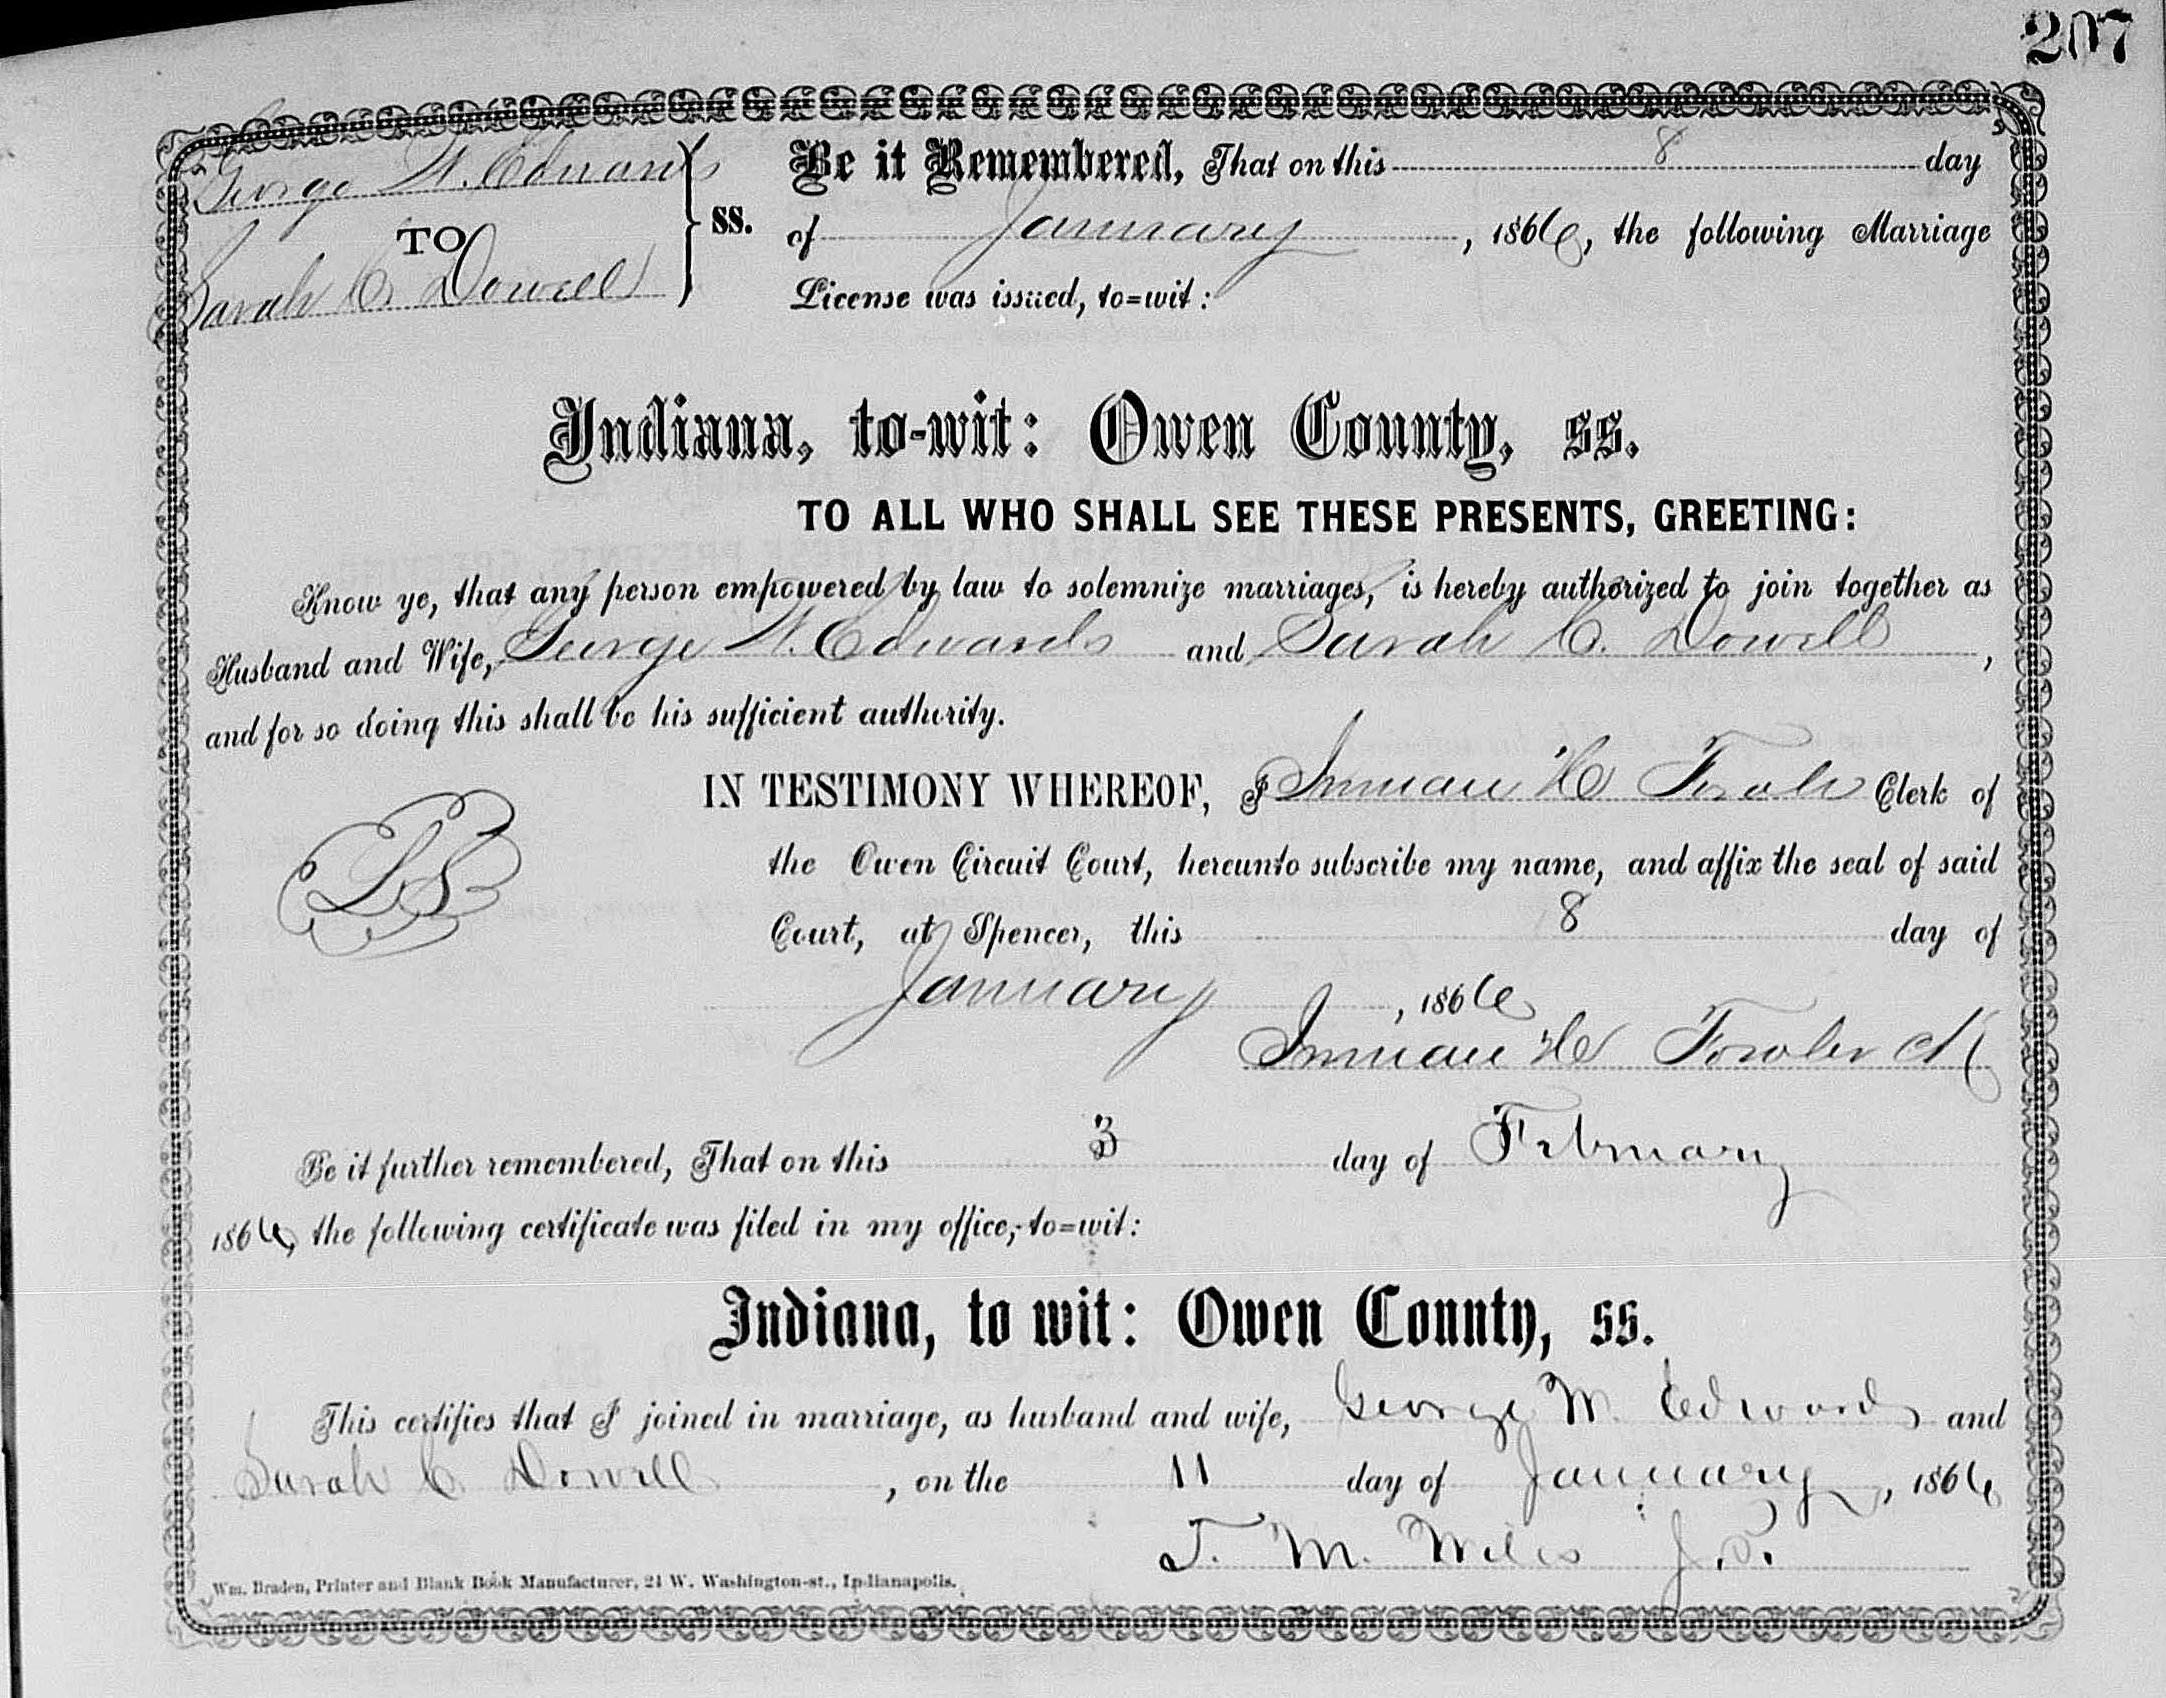 207
George W. Edwards
TO
Sarah C. Dowell
ss.
Be it Remembered, That on this 8 day
of January, 1866, the following Marriage
License was issued, to=wit:
Indiana, to-wit: Owen County, ss.
TO ALL WHO SHALL SEE THESE PRESENTS, GREETING:
Know ye, that any person empowered by law to solemnize marriages, is hereby authorized to join together as
Husband and Wife, George W. Edwards and Sarah C. Dowell,
and for so doing this shall be his sufficient authority.
IN TESTIMONY WHEREOF, I Inman H Fowler Clerk of
the Owen Circuit Court, hereunto subscribe my name, and affix the seal of said
LS
Court, at Spencer, this 8 day of
January, 1866
Inman H Fowler Clk
Be it further remembered, That on this 3 day of February
1866, the following certificate was filed in my office,-to=wit:
Indiana, to wit: Owen County, ss.
This certifies that I joined in marriage, as husband and wife, George W. Edwards and
Sarah C. Dowell, on the 11 day of January, 1866
T. M. Wiles J.P.
Wm. Braden, Printer and Blank Book Manufacturer, 21 W. Washington-st., Indianapolis.